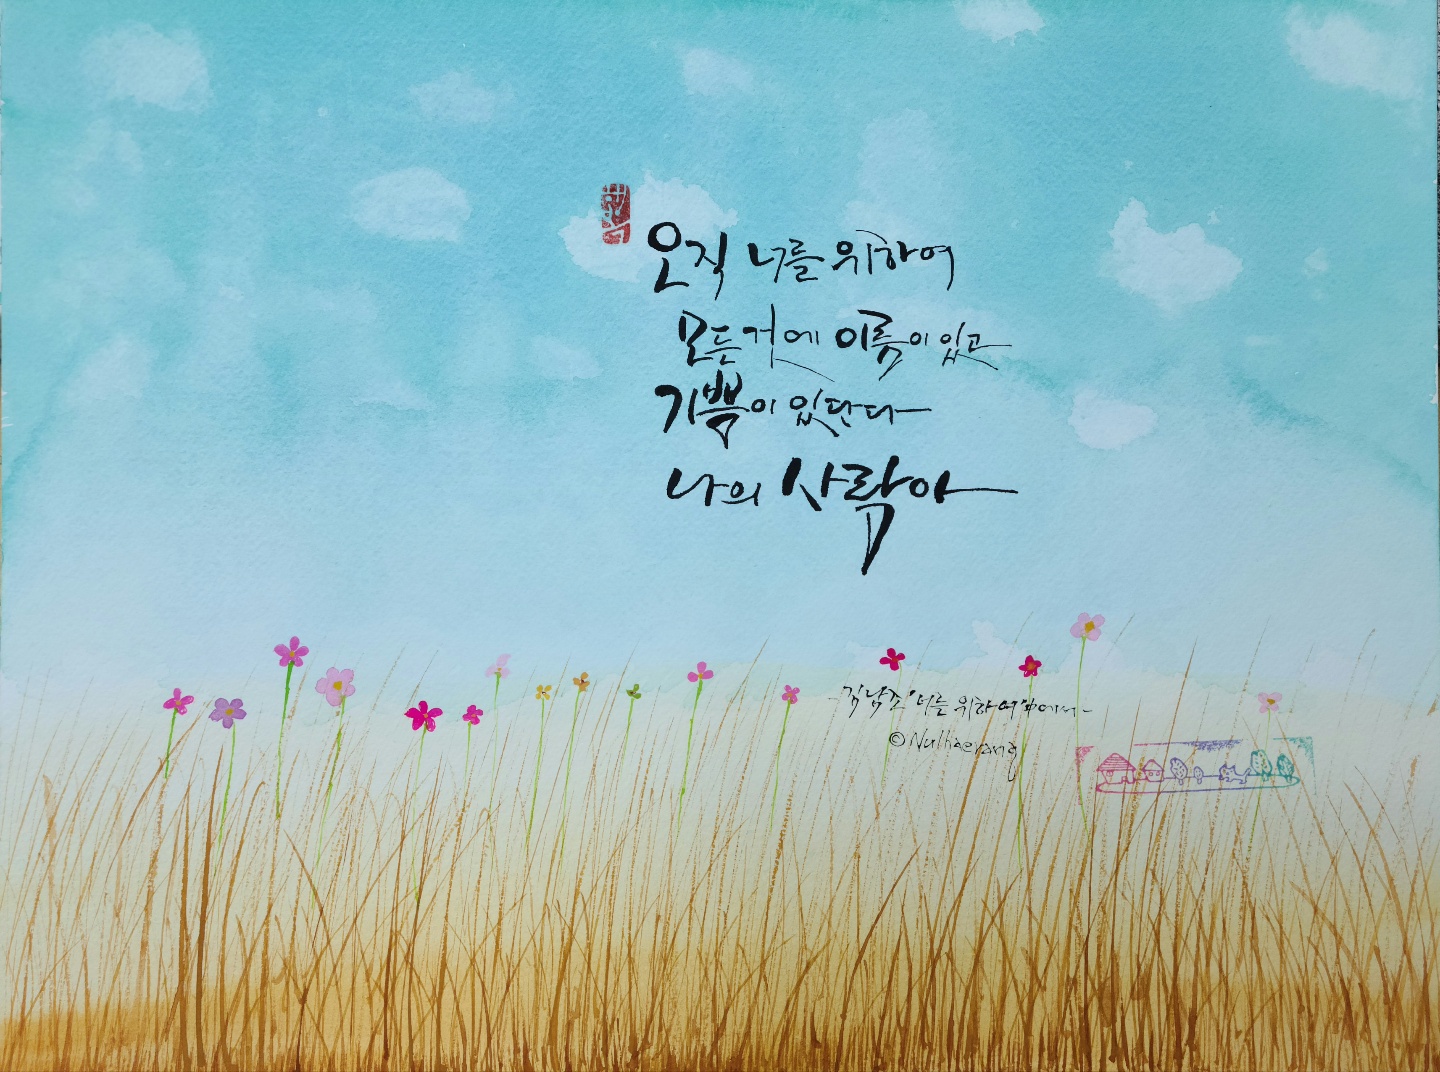 오직 너를 위하여
모든 것에 이름이 있고
기쁨이 있단다
나의 사랑아
-김남조 '너를 위하여' 中에서-
© Nulhaerang